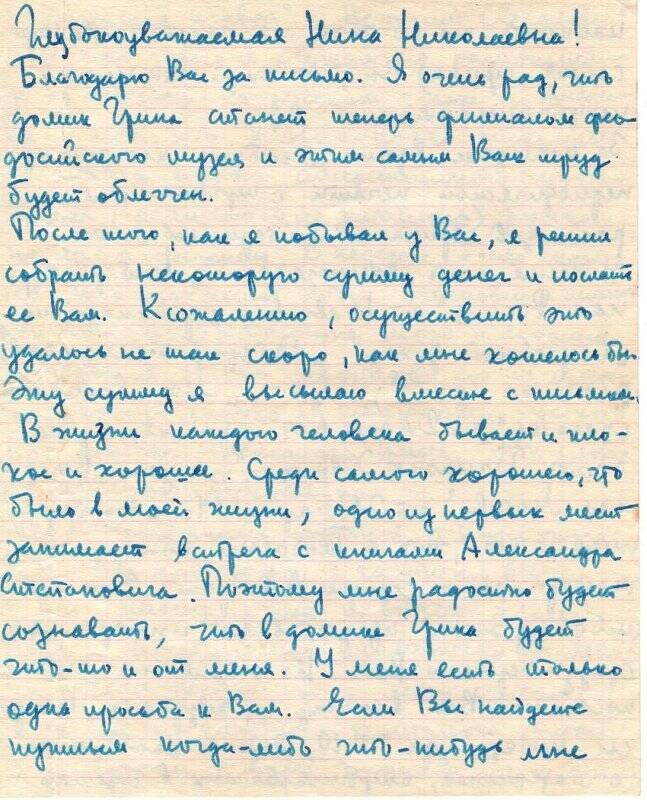 Глубокоуважаемая Нина Николаевна!
Благодарю Вас за письмо. Я очень рад, что
домик Грина станет теперь филиалом фео-
досийского музея и этим самым Ваш труд
будет облегчен.
После того, как я побывал у Вас, я решил
собрать некоторую сумму денег и послать
ее Вам. К сожалению, осуществить это
удалось не так скоро, как мне хотелось бы.
Эту сумму я высылаю вместе с письмом.
В жизни каждого человека бывает и пло-
хое и хорошее. Среди самого хорошего, что
было в моей жизни, одно из первых мест
занимает встреча с книгами Александра
Степановича. Поэтому мне радостно будет
сознавать, что в домике Грина будет
что-то и от меня. У меня есть только
одна просьба к Вам. Если Вы найдете
нужным когда-либо что-нибудь мне